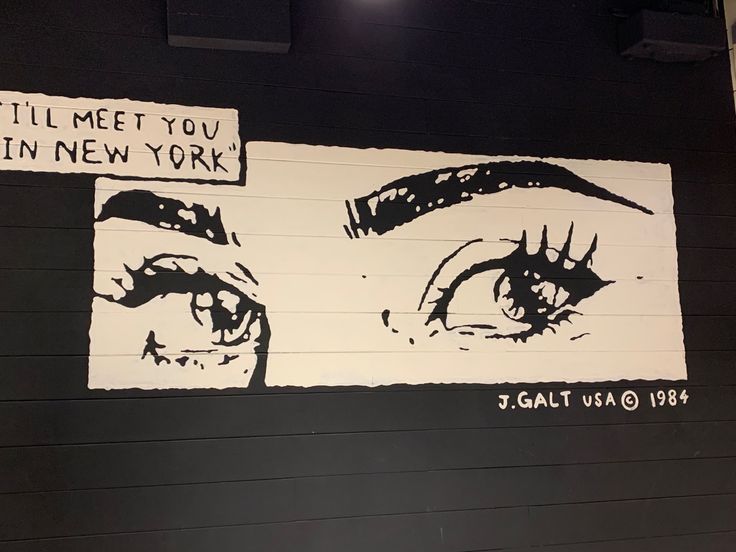 "I'LL MEET YOU
IN NEW YORK"
J.GALT USA © 1984